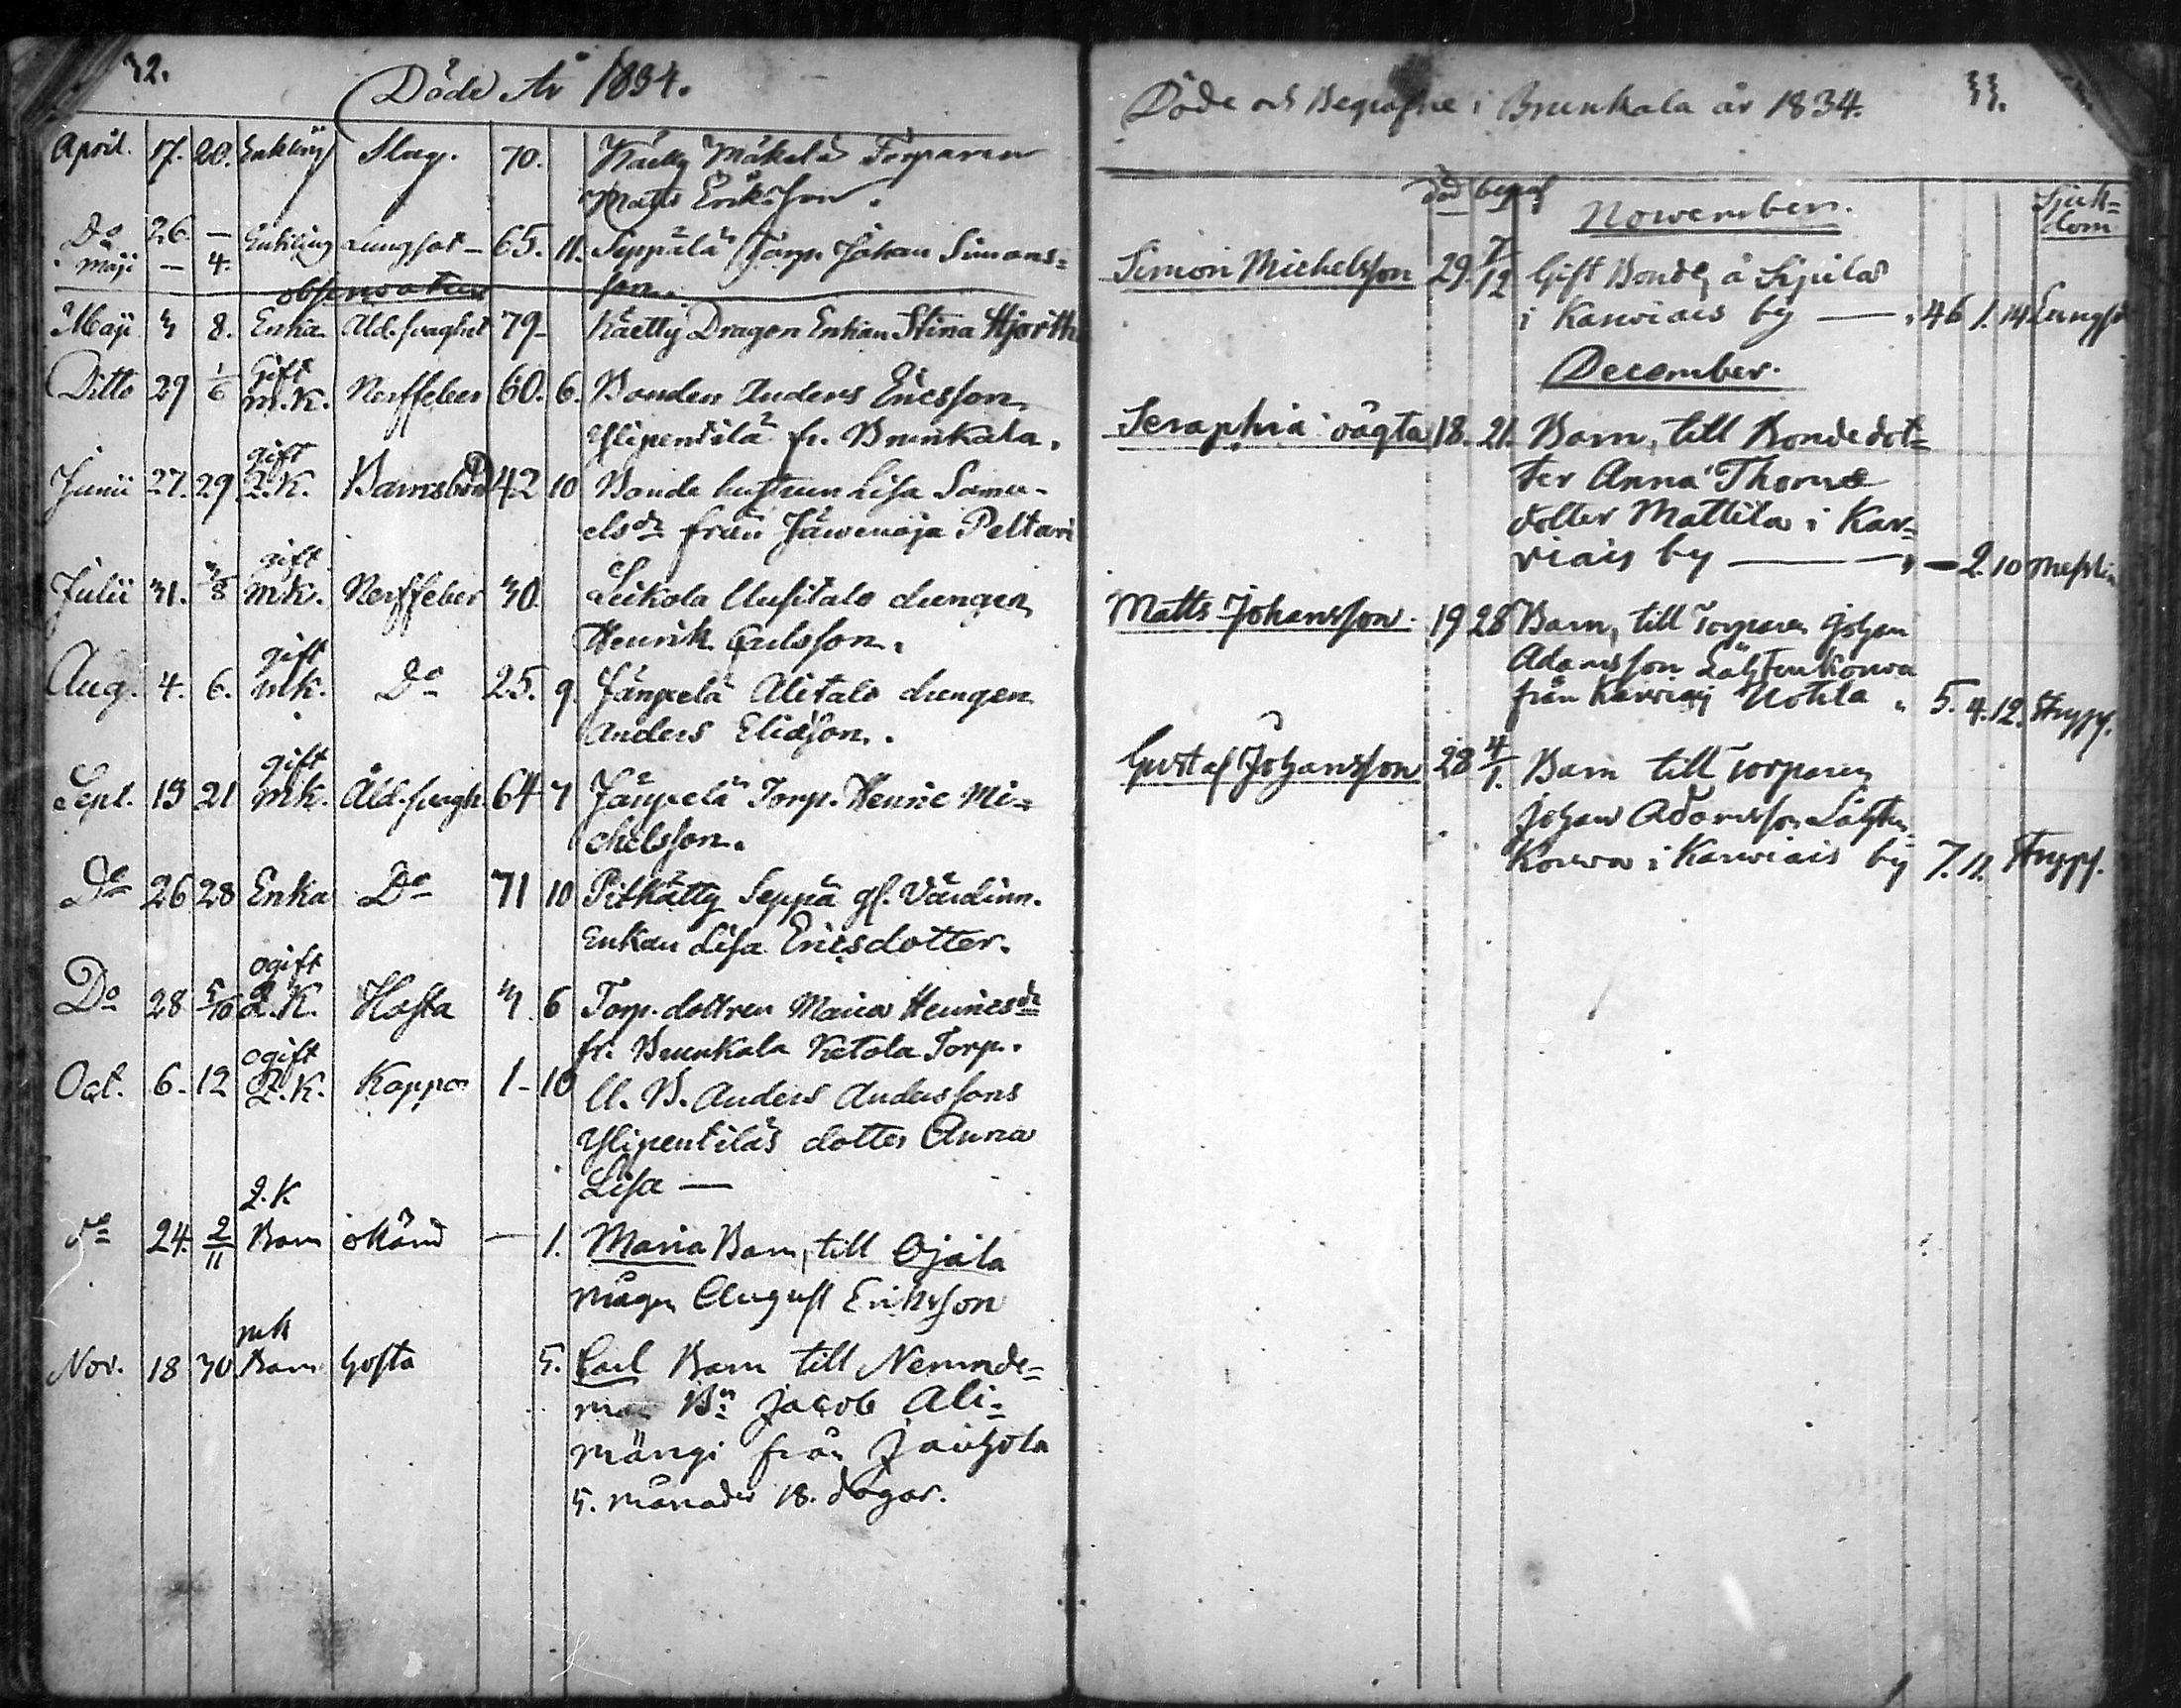 32.
Döde År 1834.
April. 17. 20. Enkling Slag. 70. Käetty Mäkelä Torparen
Matts Eriksson.
Do 26 — Enkling Lungsot — 65. 11. Seppälä Torp. Johan Simons=
Maji — 4. son.
observatur
Maji 3 8. Enka Åld.svaghet 79 — Käetty Dragon Enkan Stina Hjorth
gift
Ditto 29 1/6 m.K. Nerffeber 60. 6. Bonden Anders Ericsson
Ylipentilä fr. Brunkala.
gift
Junii 27. 29 Q.K. Barnsbörd 42 10 Bonde hustrun Lisa Samu-
elsdr från Järvenoja Peltari
gift
Julii 31. 3/8 mk. Nerffeber 30. Leikola Uusitalo drengen
Henrik Carlsson.
gift
Aug. 4. 6. mk. Do 25. 9. Jänperlä Alitalo drengen
Anders Eliasson.
gift
Sept. 19 21 mk. Åld.svagh. 64 7 Jänperlä Torp. Henric Mi=
chelsson.
Do 26 28 Enka Do 71 10 Pitkätty Seppä gl. Värdinn.
Enkan Lisa Ericsdotter.
ogift
Do 28 5/10 Q.K. Hosta 3. 6 Torp. dottren Maria Henricsdr
fr. Brunkala Ketola Torp.
ogift
Oct. 6. 12 Q.K. Koppor 1 - 10 U. B. Anders Anderssons
Ylipentiläs dotter Anna
Lisa —
Q.K.
do 24. 2/11 Barn okänd — 1. Maria Barn, till Ojala
mågen August Eriksson
mk
Nov. 18 30 Barn hosta 5. Carl Barn till Nemnde=
man Bn Jacob Ali=
mängi från Javhola
5. månader 18. dagar.
Döde och Begrafne i Brunkala år 1834. 33.
död begraf Sjuk=
dom
Nowember.
Simon Michelsson 29. 7/12 Gift Bonde, å Sipilä
i Karviais by — 46 1. 14 Lungsot
December.
Seraphia oägta 18. 21. Barn, till Bondedot=
ter Anna Thomæ
dotter Mattila i Kar=
viais by — — 2. 10 Messlin
Matts Johansson. 19 28 Barn, till Torparen Johan
Adamsson Lähtenkorva
från Karviais Uotila 5. 4. 12. Strypsj.
Gustaf Johansson 28 4/1. Barn till Torparen
Johan Adamsson Lähten=
Korva i Karviais by 7. 11. Strypsj.